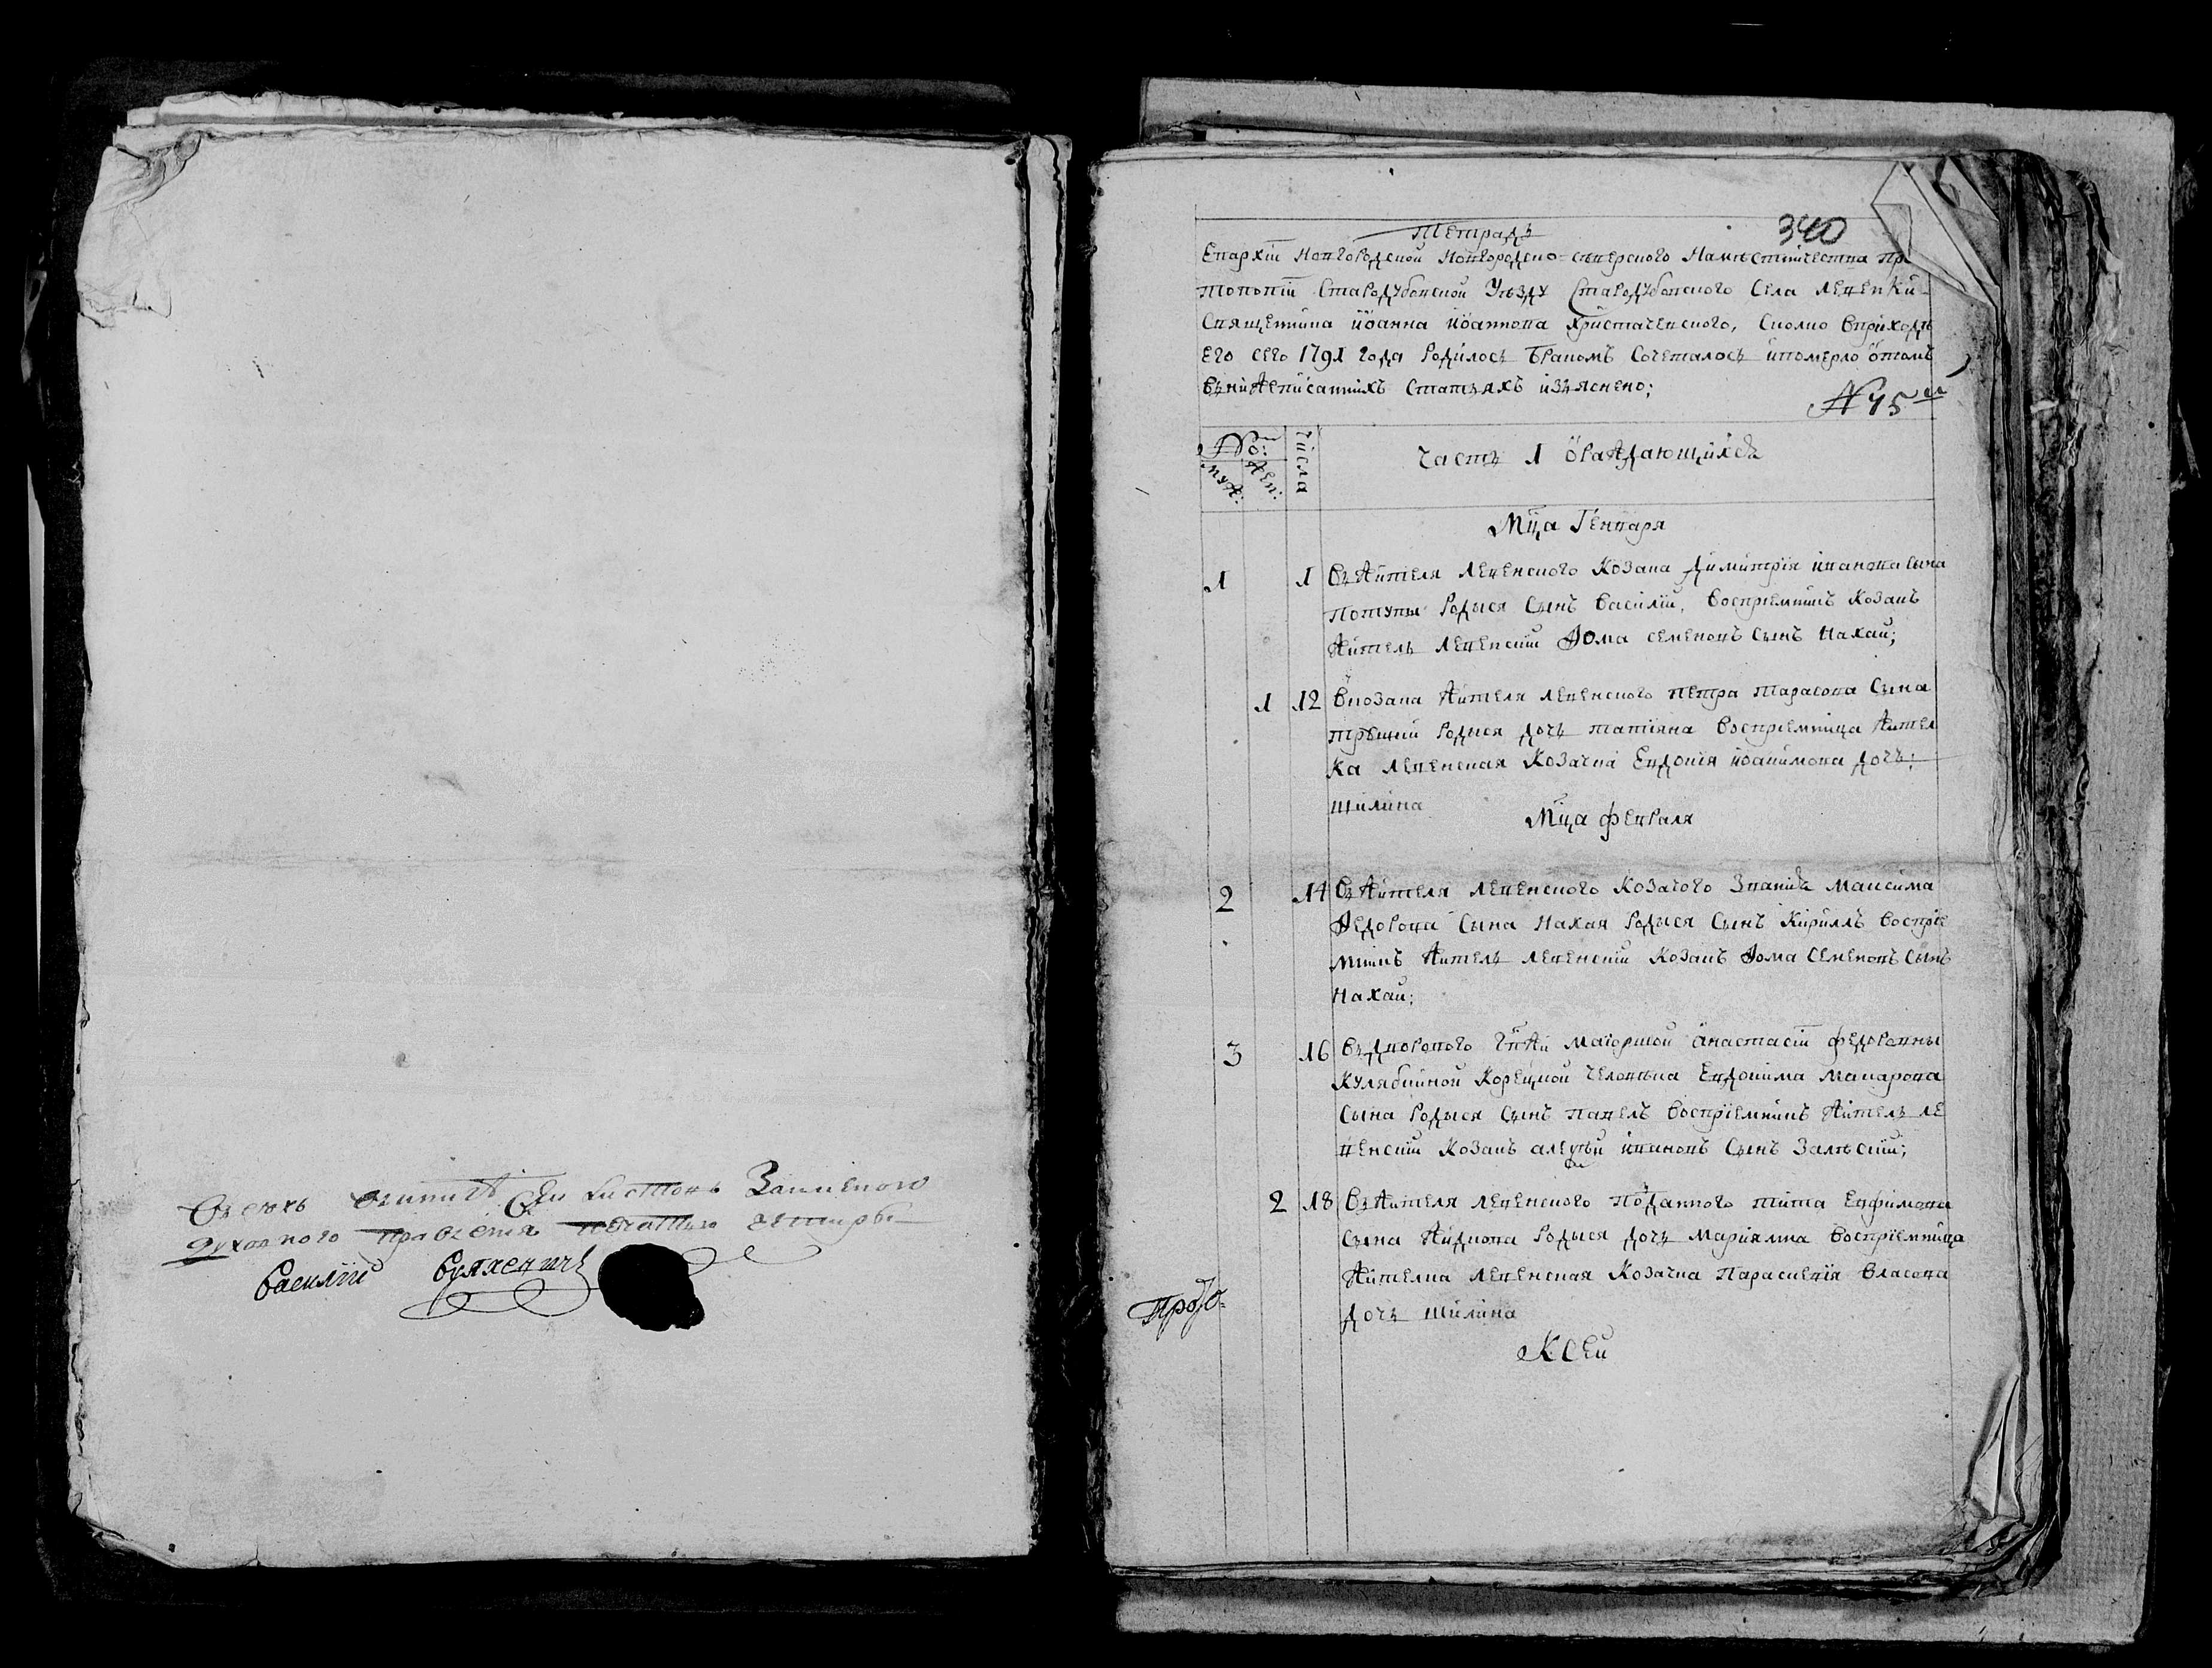 Василий
340
Тетрадь
Епархіи Новгородской Новгородско-сѣверского Намѣстничества Про
топопіи Стародубовской Уѣзду Стародубовского Села Левенки
Священника Иоанна Иоаннова Християневского, Сколко вприходѣ
его сего 1791 года родилось бракомъ сочеталось и померло о томъ
внижеписанихъ статьяхъ изъяснено;
№ 45й
№: муж: жен: числа
Часть 1 о раждающихся
Мца Генваря
1 1 Въ жителя левенского козака Димитрія иванова сына
потупы родыся сынъ василий, восприемникъ козакъ
житель левенский Фома семеновъ сынъ Нахай;
1 12 В козака жителя левенского петра тарасова сына
родыся дочь татияна восприемница жител
ка левенская козачка Евдокія иоакимова дочь;
шилина
Мца февраля
2 14 Въ жителя левенского козачого званія максима
Федорова сына Нахая родыся сынъ Кириллъ воспріе
мникъ житель левенский козакъ Фома семеновъ сынъ
Нахай;
3 16 Въ дворового гпжи маіоршой анастасіи федоровны
Кулябкиной Корецкой человѣка Евдокима макарова
сына родыся сынъ павелъ восприемникъ житель ле
венский козакъ иванов сынъ Залѣский;
2 18 Въ жителя левенского подданного тита Евфимова
сына Жидкова родыся дочь Мариямна восприемница
жителка левенская козачка Параскевія власова
дочь шилина
К сей